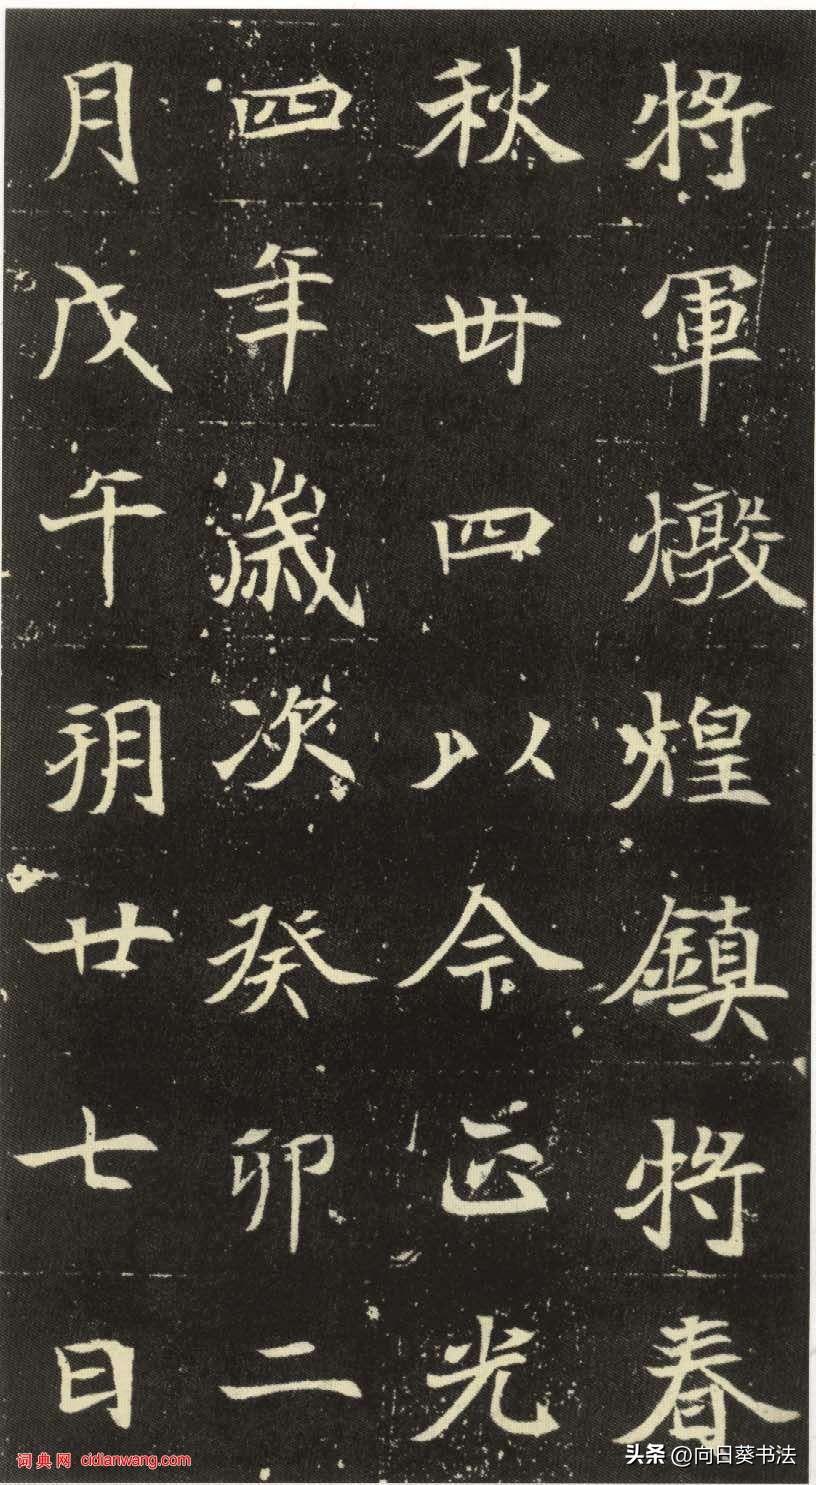 將軍燉煌鎮將春
秋卅四以今正光
四年歲次癸卯二
月戊午朔廿七日
词典网 cidianwang.com
头条 @向日葵书法